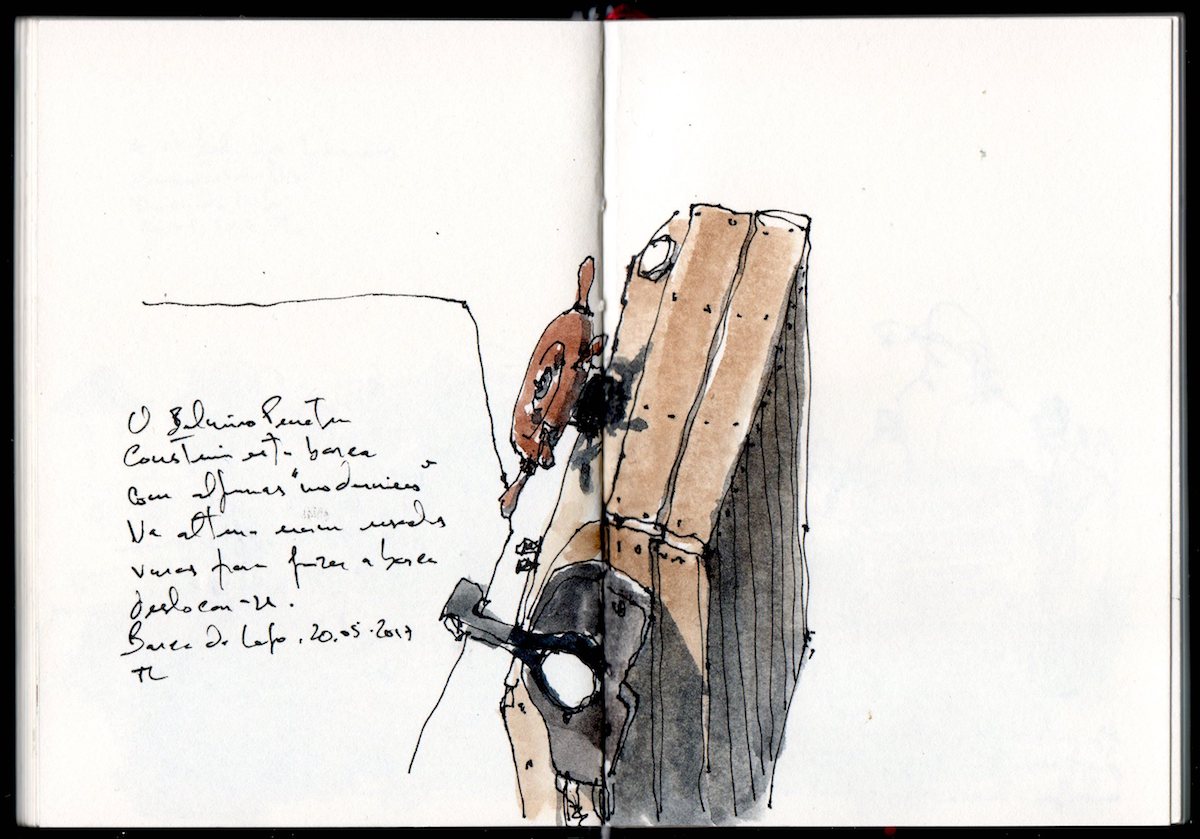 O Belmiro
Construiu esta barca
com algumas "modernices"
Na altura eram usadas
varas para fazer a barca
deslocar-se.
Barca do Lago. 20.05.2017
TL